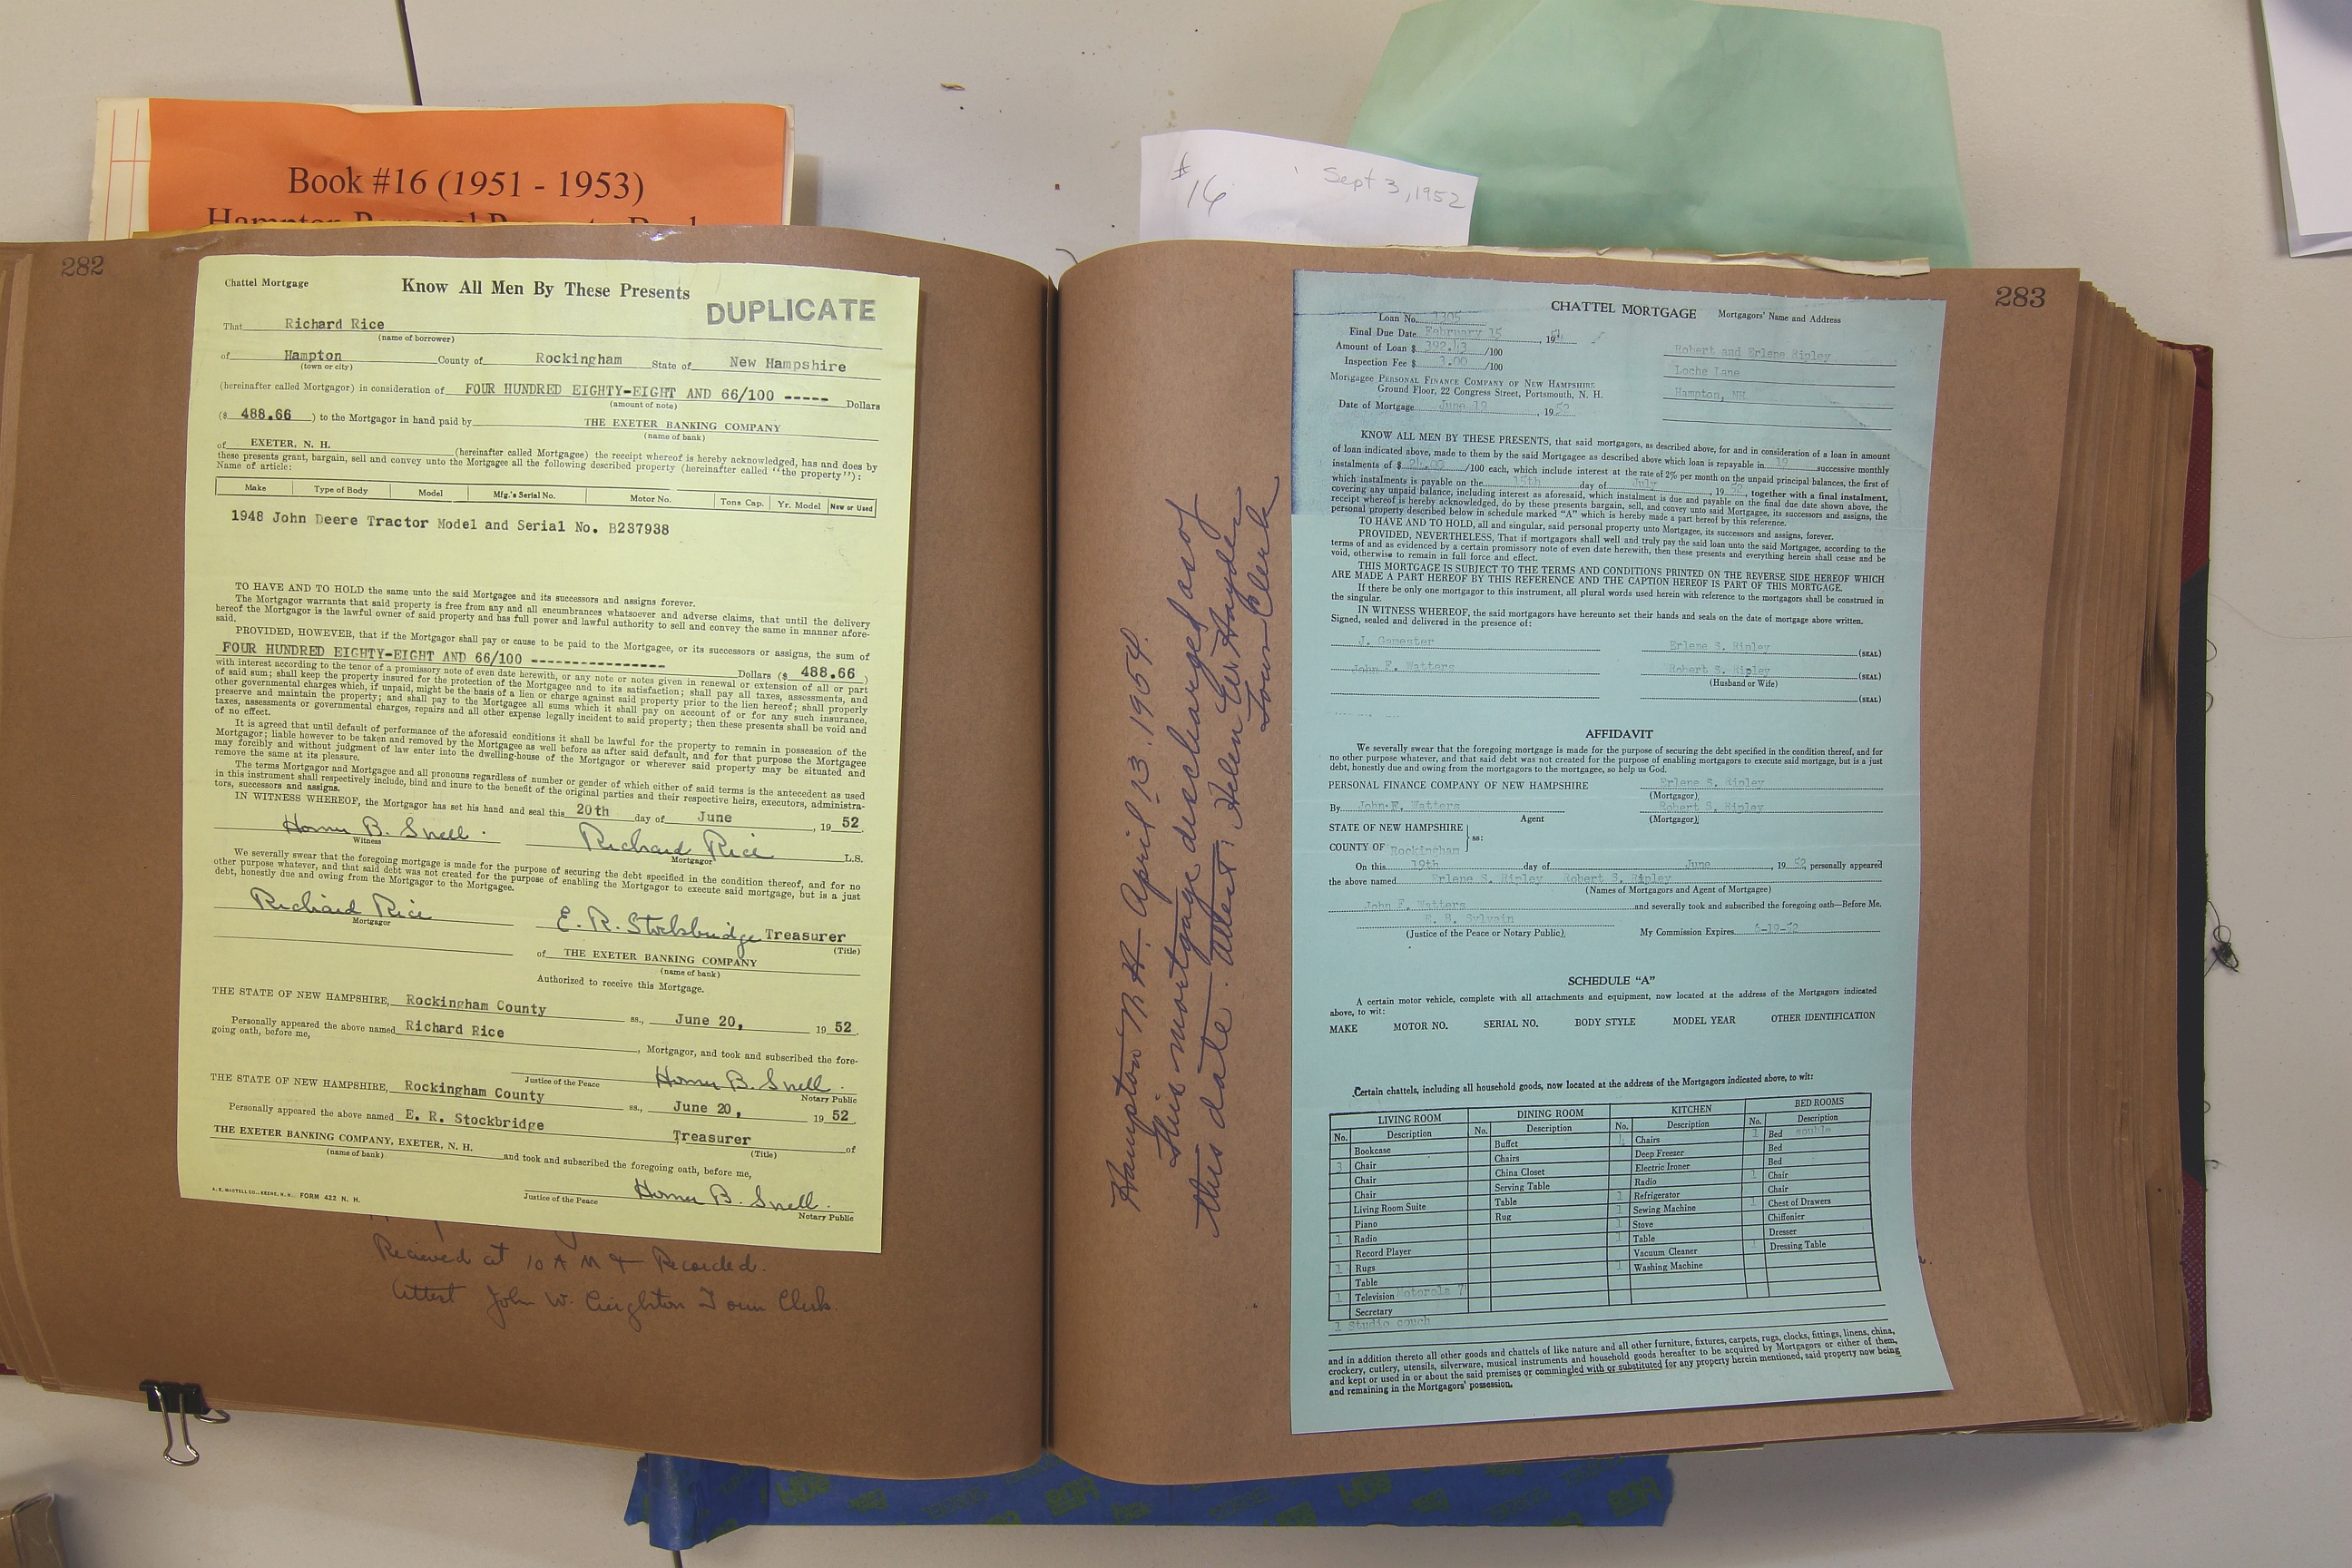 Book #16 (1951 - 1953)
# 16
Sept 3, 1952
282
Chattel Mortgage
Know All Men By These Presents
DUPLICATE
That Richard Rice
(name of borrower)
of Hampton County of Rockingham State of New Hampshire
(town or city)
(hereinafter called Mortgagor) in consideration of FOUR HUNDRED EIGHTY-EIGHT AND 66/100 ----- Dollars
(amount of note)
($ 488.66 ) to the Mortgagor in hand paid by THE EXETER BANKING COMPANY
(name of bank)
of EXETER, N. H. (hereinafter called Mortgagee) the receipt whereof is hereby acknowledged, has and does by
these presents grant, bargain, sell and convey unto the Mortgagee all the following described property (hereinafter called "the property"):
Name of article:
Make Type of Body Model Mfg.'s Serial No. Motor No. Tons Cap. Yr. Model New or Used
1948 John Deere Tractor Model and Serial No. B237938
TO HAVE AND TO HOLD the same unto the said Mortgagee and its successors and assigns forever.
The Mortgagor warrants that said property is free from any and all encumbrances whatsoever and adverse claims, that until the delivery
hereof the Mortgagor is the lawful owner of said property and has full power and lawful authority to sell and convey the same in manner afore-
said.
PROVIDED, HOWEVER, that if the Mortgagor shall pay or cause to be paid to the Mortgagee, or its successors or assigns, the sum of
FOUR HUNDRED EIGHTY-EIGHT AND 66/100 --------------- Dollars ($ 488.66 )
with interest according to the tenor of a promissory note of even date herewith, or any note or notes given in renewal or extension of all or part
of said sum; shall keep the property insured for the protection of the Mortgagee and to its satisfaction; shall pay all taxes, assessments, and
other governmental charges which, if unpaid, might be the basis of a lien or charge against said property prior to the lien hereof; shall properly
preserve and maintain the property; and shall pay to the Mortgagee all sums which it shall pay on account of or for any such insurance,
taxes, assessments or governmental charges, repairs and all other expense legally incident to said property; then these presents shall be void and
of no effect.
It is agreed that until default of performance of the aforesaid conditions it shall be lawful for the property to remain in possession of the
Mortgagor; liable however to be taken and removed by the Mortgagee as well before as after said default, and for that purpose the Mortgagee
may forcibly and without judgment of law enter into the dwelling-house of the Mortgagor or wherever said property may be situated and
remove the same at its pleasure.
The terms Mortgagor and Mortgagee and all pronouns regardless of number or gender of which either of said terms is the antecedent as used
in this instrument shall respectively include, bind and inure to the benefit of the original parties and their respective heirs, executors, administra-
tors, successors and assigns.
IN WITNESS WHEREOF, the Mortgagor has set his hand and seal this 20th day of June , 19 52
Homer B. Snell. Richard Rice L.S.
Witness Mortgagor
We severally swear that the foregoing mortgage is made for the purpose of securing the debt specified in the condition thereof, and for no
other purpose whatever, and that said debt was not created for the purpose of enabling the Mortgagor to execute said mortgage, but is a just
debt, honestly due and owing from the Mortgagor to the Mortgagee.
Richard Rice E. R. Stockbridge Treasurer
Mortgagor (Title)
of THE EXETER BANKING COMPANY
(name of bank)
Authorized to receive this Mortgage.
THE STATE OF NEW HAMPSHIRE, Rockingham County ss., June 20, 19 52
Personally appeared the above named Richard Rice , Mortgagor, and took and subscribed the fore-
going oath, before me,
Homer B. Snell.
Justice of the Peace Notary Public
THE STATE OF NEW HAMPSHIRE, Rockingham County ss., June 20, 19 52
Personally appeared the above named E. R. Stockbridge Treasurer of
(Title)
THE EXETER BANKING COMPANY, EXETER, N. H. and took and subscribed the foregoing oath, before me,
(name of bank)
Homer B. Snell.
Justice of the Peace Notary Public
FORM 422 N. H.
Recieved at 10 A M & Recorded.
Attest John W. Creighton Town Clerk.
Hampton N. H. April 13. 1954.
This mortgage discharged as of
this date. Attest: Helen W. Hayden
Town Clerk
283
CHATTEL MORTGAGE Mortgagors' Name and Address
Loan No. 1305
Final Due Date February 15 , 1954
Amount of Loan $ 392.43 /100
Inspection Fee $ 3.00 /100
Robert and Erlene Ripley
Loche Lane
Hampton, NH
Mortgagee PERSONAL FINANCE COMPANY OF NEW HAMPSHIRE
Ground Floor, 22 Congress Street, Portsmouth, N. H.
Date of Mortgage June 19 , 1952
KNOW ALL MEN BY THESE PRESENTS, that said mortgagors, as described above, for and in consideration of a loan in amount
of loan indicated above, made to them by the said Mortgagee as described above which loan is repayable in 19 successive monthly
instalments of $ /100 each, which include interest at the rate of 2% per month on the unpaid principal balances, the first of
which instalments is payable on the 15th day of July , 19 52, together with a final instalment,
covering any unpaid balance, including interest as aforesaid, which instalment is due and payable on the final due date shown above, the
receipt whereof is hereby acknowledged, do by these presents bargain, sell, and convey unto said Mortgagee, its successors and assigns, the
personal property described below in schedule marked "A" which is hereby made a part hereof by this reference.
TO HAVE AND TO HOLD, all and singular, said personal property unto Mortgagee, its successors and assigns, forever.
PROVIDED, NEVERTHELESS, That if mortgagors shall well and truly pay the said loan unto the said Mortgagee, according to the
terms of and as evidenced by a certain promissory note of even date herewith, then these presents and everything herein shall cease and be
void, otherwise to remain in full force and effect.
THIS MORTGAGE IS SUBJECT TO THE TERMS AND CONDITIONS PRINTED ON THE REVERSE SIDE HEREOF WHICH
ARE MADE A PART HEREOF BY THIS REFERENCE AND THE CAPTION HEREOF IS PART OF THIS MORTGAGE.
If there be only one mortgagor to this instrument, all plural words used herein with reference to the mortgagors shall be construed in
the singular.
IN WITNESS WHEREOF, the said mortgagors have hereunto set their hands and seals on the date of mortgage above written.
Signed, sealed and delivered in the presence of:
J. Gamester Erlene S. Ripley (SEAL)
John F. Watters Robert S. Ripley (SEAL)
(Husband or Wife)
(SEAL)
AFFIDAVIT
We severally swear that the foregoing mortgage is made for the purpose of securing the debt specified in the condition thereof, and for
no other purpose whatever, and that said debt was not created for the purpose of enabling mortgagors to execute said mortgage, but is a just
debt, honestly due and owing from the mortgagors to the mortgagee, so help us God.
PERSONAL FINANCE COMPANY OF NEW HAMPSHIRE Erlene S. Ripley
(Mortgagor)
By John F. Watters Robert S. Ripley
Agent (Mortgagor)
STATE OF NEW HAMPSHIRE
ss:
COUNTY OF Rockingham
On this 19th day of June , 19 52 personally appeared
the above named Erlene S. Ripley Robert S. Ripley
(Names of Mortgagors and Agent of Mortgagee)
John F. Watters and severally took and subscribed the foregoing oath—Before Me.
E. B. Sylvain
(Justice of the Peace or Notary Public) My Commission Expires 6-19-52
SCHEDULE "A"
A certain motor vehicle, complete with all attachments and equipment, now located at the address of the Mortgagors indicated
above, to wit:
MAKE MOTOR NO. SERIAL NO. BODY STYLE MODEL YEAR OTHER IDENTIFICATION
Certain chattels, including all household goods, now located at the address of the Mortgagors indicated above, to wit:
LIVING ROOM DINING ROOM KITCHEN BED ROOMS
No. Description No. Description No. Description No. Description
Bookcase Buffet 4 Chairs 1 Bed double
3 Chair Chairs Deep Freezer Bed
Chair China Closet Electric Ironer Bed
Chair Serving Table Radio 1 Chair
Living Room Suite Table 1 Refrigerator Chair
Piano Rug 1 Sewing Machine 1 Chest of Drawers
1 Radio 1 Stove Chiffonier
Record Player 1 Table Dresser
1 Rugs Vacuum Cleaner 1 Dressing Table
Table 1 Washing Machine
1 Television Motorola 7
Secretary
1 Studio couch
and in addition thereto all other goods and chattels of like nature and all other furniture, fixtures, carpets, rugs, clocks, fittings, linens, china,
crockery, cutlery, utensils, silverware, musical instruments and household goods hereafter to be acquired by Mortgagors or either of them,
and kept or used in or about the said premises or commingled with or substituted for any property herein mentioned, said property now being
and remaining in the Mortgagors' possession.